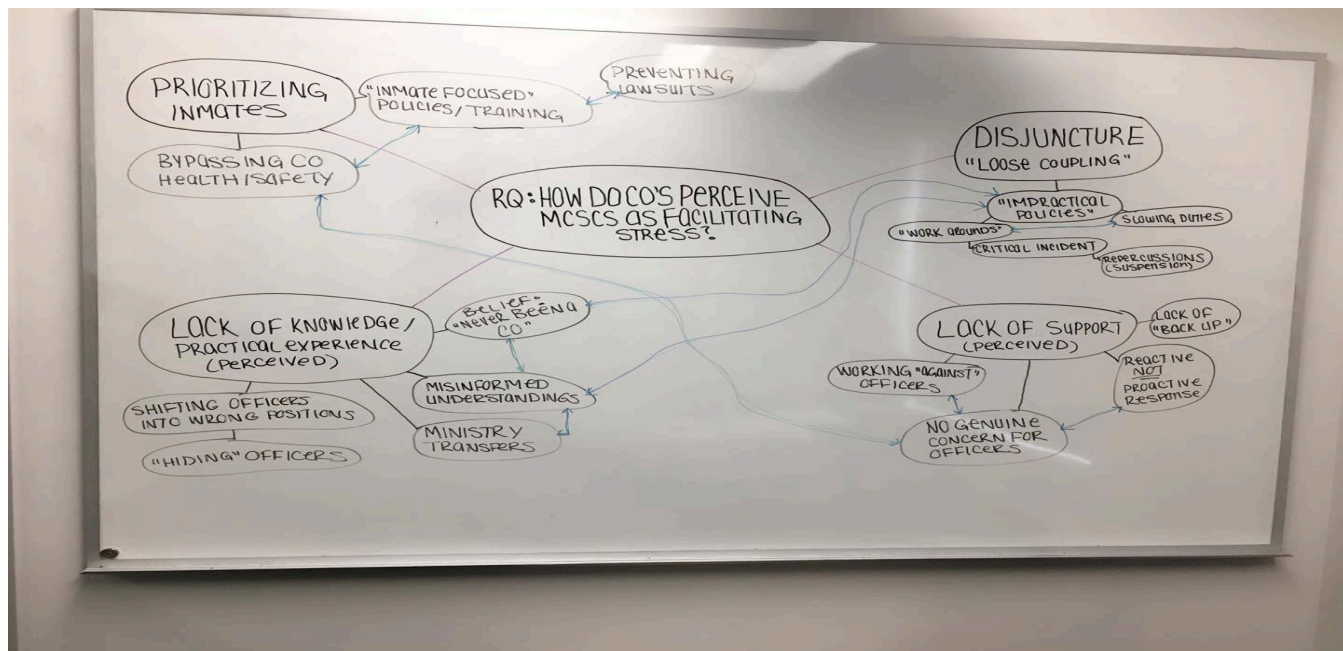 PRIORITIZING
INMATES
"INMATE FOCUSED"
POLICIES/TRAINING
PREVENTING
LAWSUITS
BYPASSING CO
HEALTH/SAFETY
RQ: HOW DO CO'S PERCEIVE
MCSCS AS FACILITATING
STRESS?
DISJUNCTURE
"LOOSE COUPLING"
"IMPRACTICAL
POLICIES"
SLOWING DUTIES
"WORK AROUNDS"
CRITICAL INCIDENT
REPERCUSSIONS
(SUSPENSION)
LACK OF KNOWLEDGE/
PRACTICAL EXPERIENCE
(PERCEIVED)
BELIEF:
"NEVER BEEN A
CO"
MISINFORMED
UNDERSTANDINGS
MINISTRY
TRANSFERS
SHIFTING OFFICERS
INTO WRONG POSITIONS
"HIDING" OFFICERS
LACK OF SUPPORT
(PERCEIVED)
LACK OF
"BACK UP"
WORKING "AGAINST"
OFFICERS
REACTIVE
NOT
PROACTIVE
RESPONSE
NO GENUINE
CONCERN FOR
OFFICERS